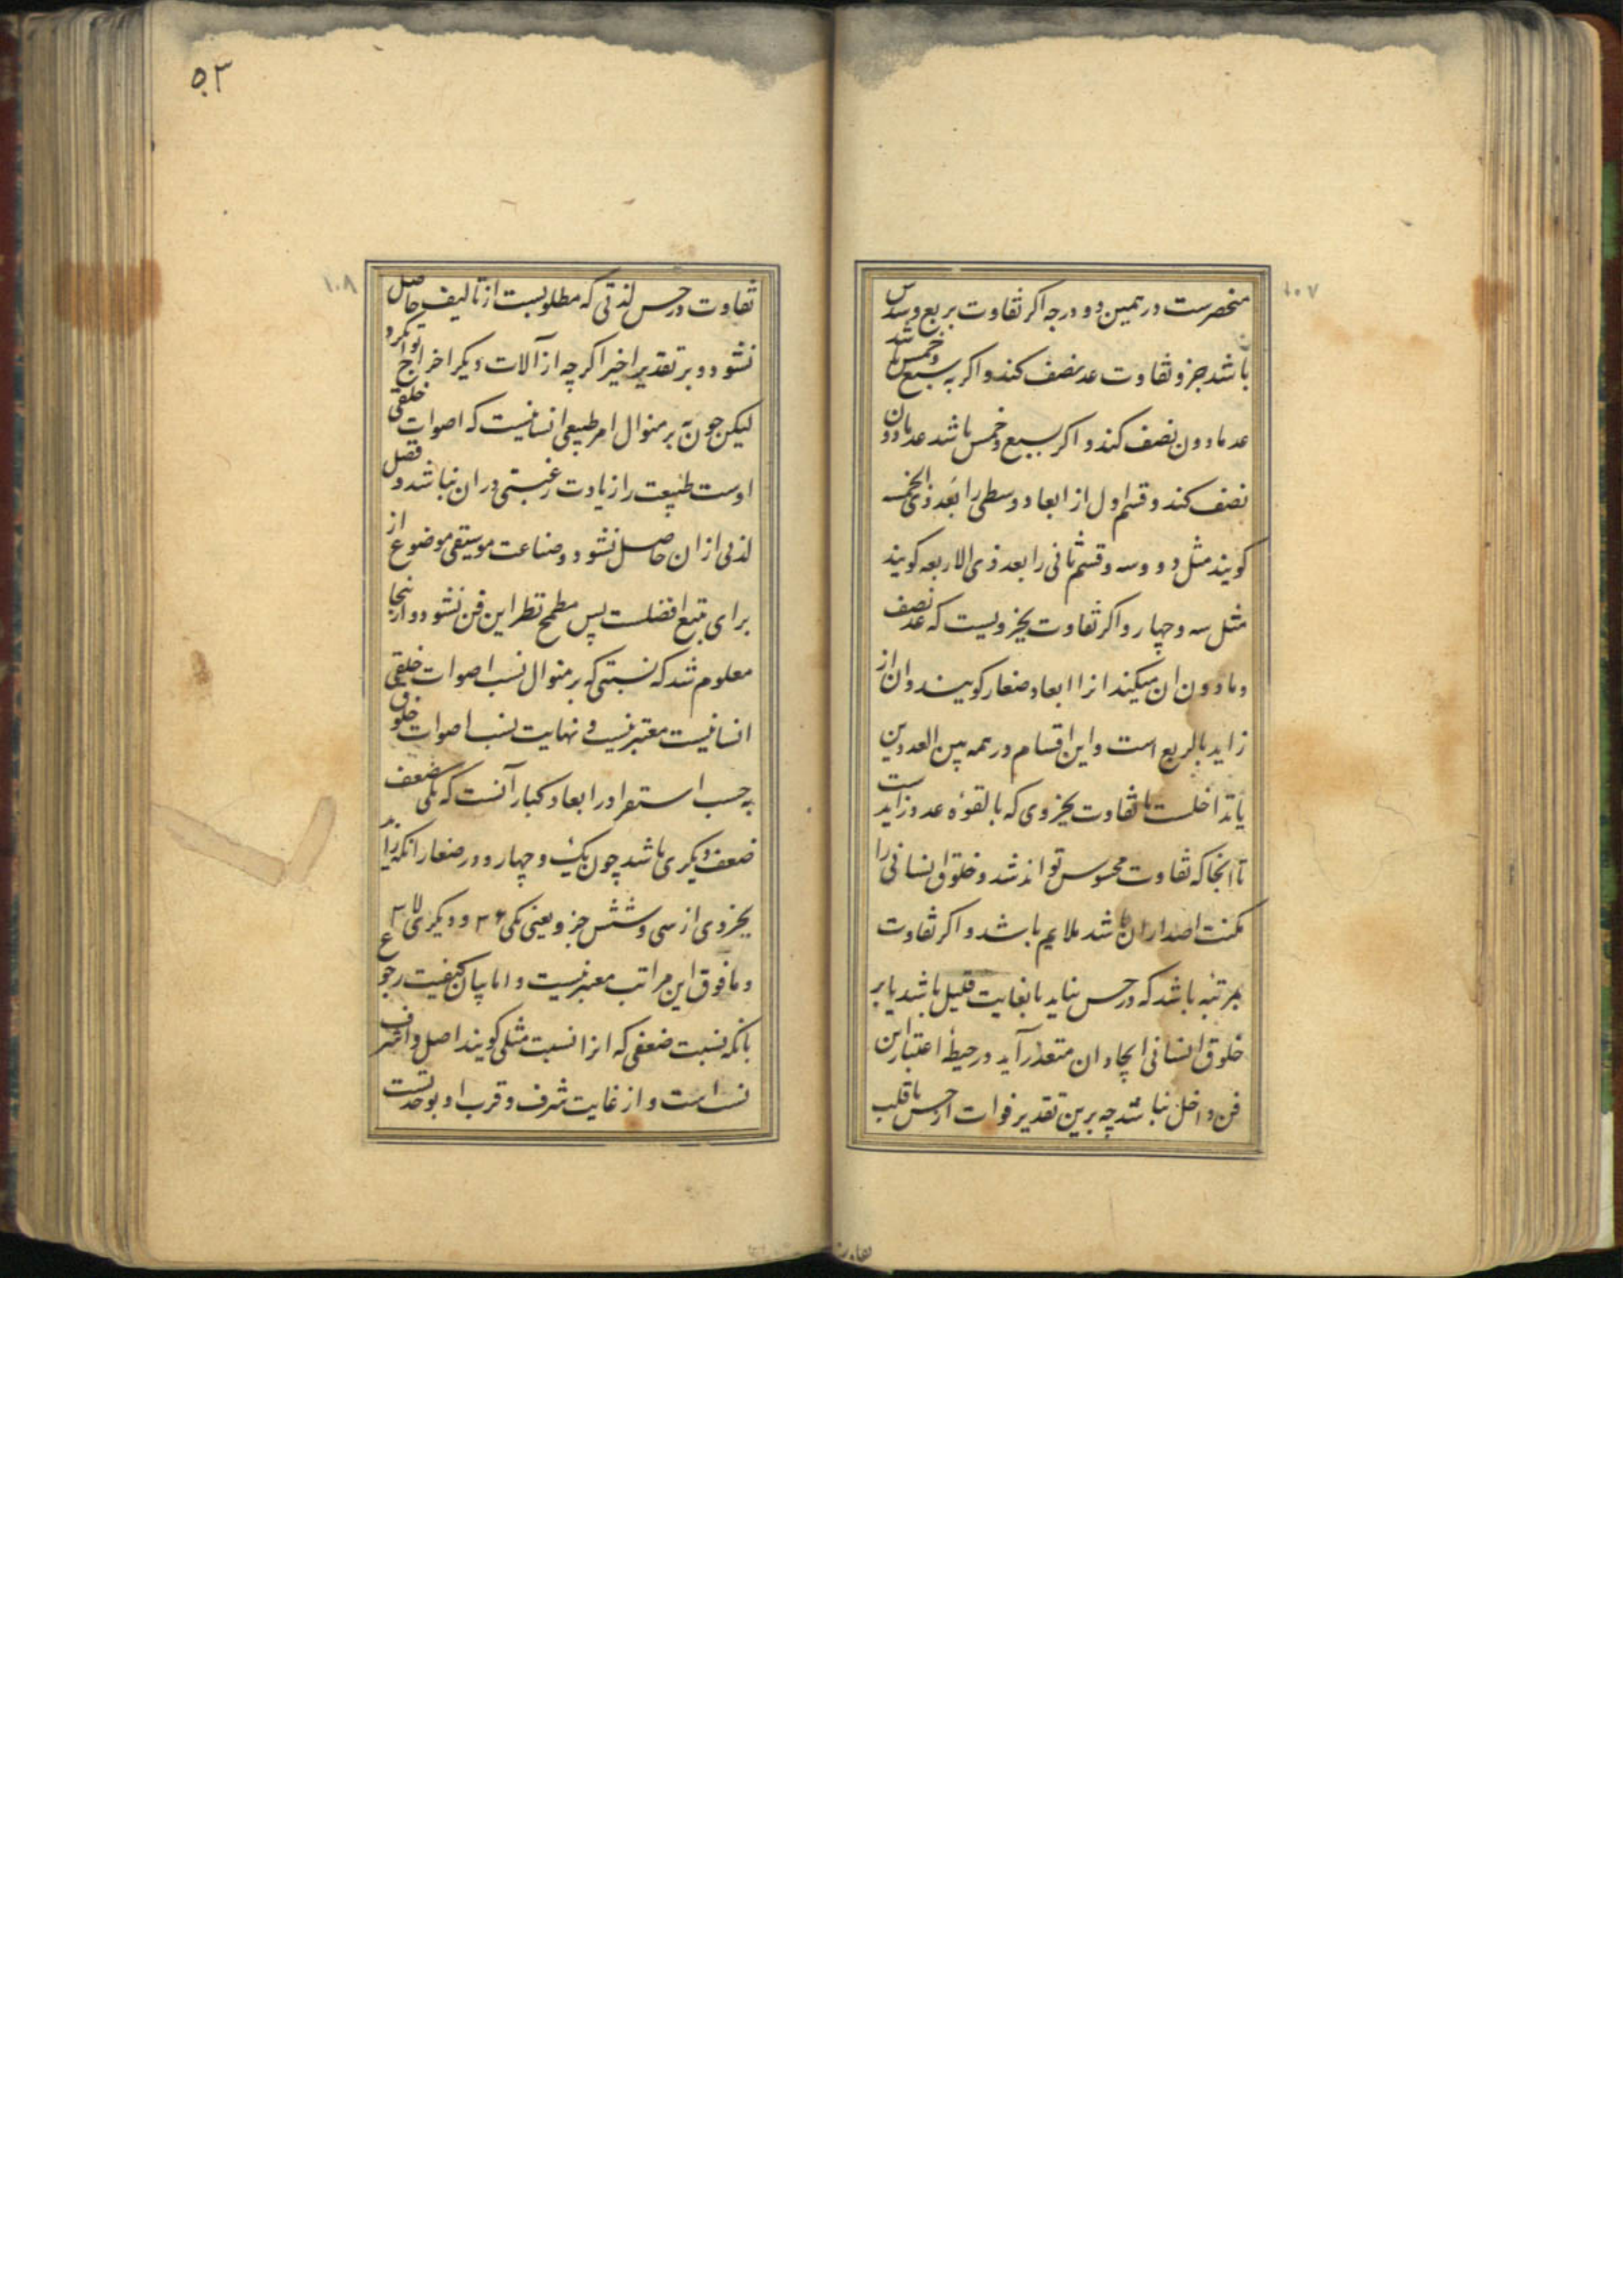 ۱۰۷
منحصرست در همین دو درجه اکر تفاوت بربع و سدس
باشد جزو تفاوت عد نصف کند و اکر به سبع و خمس باشد
عد مادون نصف کند و اکر بسبع و خمس باشد عد مادون
نصف کند و قسم اول از ابعاد وسطی را بعد ذی الخمس
کویند مثل دو و سه و قسم ثانی را بعد ذی الاربعه کویند
مثل سه و چهار و اکر تفاوت بجزویست که عد نصف
و مادون ان میکند انرا ابعاد صغار کویند و ان از
زاید بالربع است و این اقسام در همه بین العددین
یا تداخلست یا تفاوت بجزوی که بالقوه عد و زاید است
تا انجا که تفاوت محسوس تواند شد و خلوق انسانی را
مکنت اصدار ان باشد ملایم باشد و اکر تفاوت
بمرتبه باشد که در حس نیاید یا بغایت قلیل باشد یا بر
خلوق انسانی ایجاد ان متعذر آید در حیطهٔ اعتبار این
فن داخل نباشد چه برین تقدیر فوات از حس یا قلب
تفاوت
۵۳
۱۰۸
تفاوت در حس لذتی که مطلوبست از تالیف حاصل
نشود و بر تقدیر اخیر اکرچه از آلات دیکر اخراج توان کرد
لیکن چون نه بر منوال امر طبیعی انسانیست که اصوات خلقی
اوست طبیعت را زیادت رغبتی در ان نباشد و فضل
لذتی از ان حاصل نشود و صناعت موسیقی موضوع از
برای تتبع افضلست پس مطمح نظر این فن نشود و از اینجا
معلوم شد که نسبتی که بر منوال نسب اصوات خلقی
انسانیست معتبر نیست و نهایت نسب اصوات خلوق
به حسب استقرا در ابعاد کبار آنست که یکی ضعف
ضعف دیکری باشد چون یک و چهار و در صغار انکه زاید
بجزوی از سی و شش جزو یعنی یکی ۳۶ و دیکری ۳۷
و مافوق این مراتب معتبر نیست و اما بیان کیفیت رجوع
بانکه نسبت ضعفی که انرا نسبت مثلی کویند اصل و اشرف
نسب است و از غایت شرف و قرب او بوحدتست